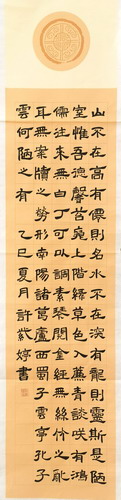 山不在高有僊則名水不在深有龍則靈斯是陋
室惟吾德馨苔痕上階綠草色入簾青談咲有鴻
儒往來無白丁可以調素琴閱金經無絲竹之亂
耳無案牘之勞形南陽諸葛廬西蜀子雲亭孔子
雲何陋之有 乙巳夏月許婷書